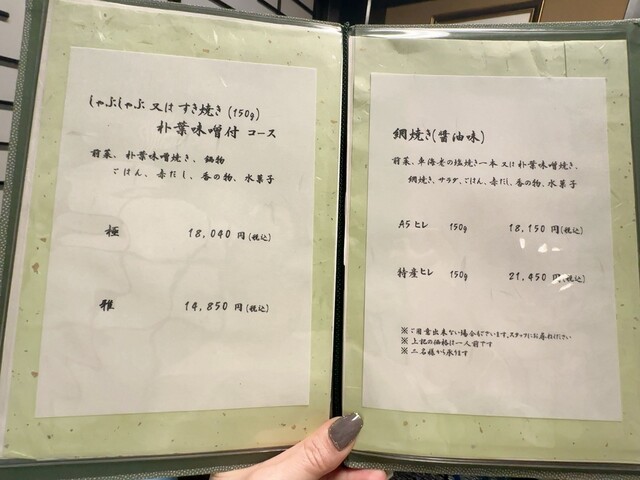 しゃぶしゃぶ 又は すき焼き (150g)
朴葉味噌付 コース
前菜、朴葉味噌焼き、鍋物
ごはん、赤だし、香の物、水菓子
極 18,040 円(税込)
雅 14,850 円(税込)
網焼き(醤油味)
前菜、車海老の塩焼き一本 又は 朴葉味噌焼き、
網焼き、サラダ、ごはん、赤だし、香の物、水菓子
A5 ヒレ 150g 18,150 円(税込)
特産ヒレ 150g 21,450 円(税込)
※ご用意出来ない場合もございます。スタッフにお尋ねください
※上記の価格は一人前です
※二名様から承ります